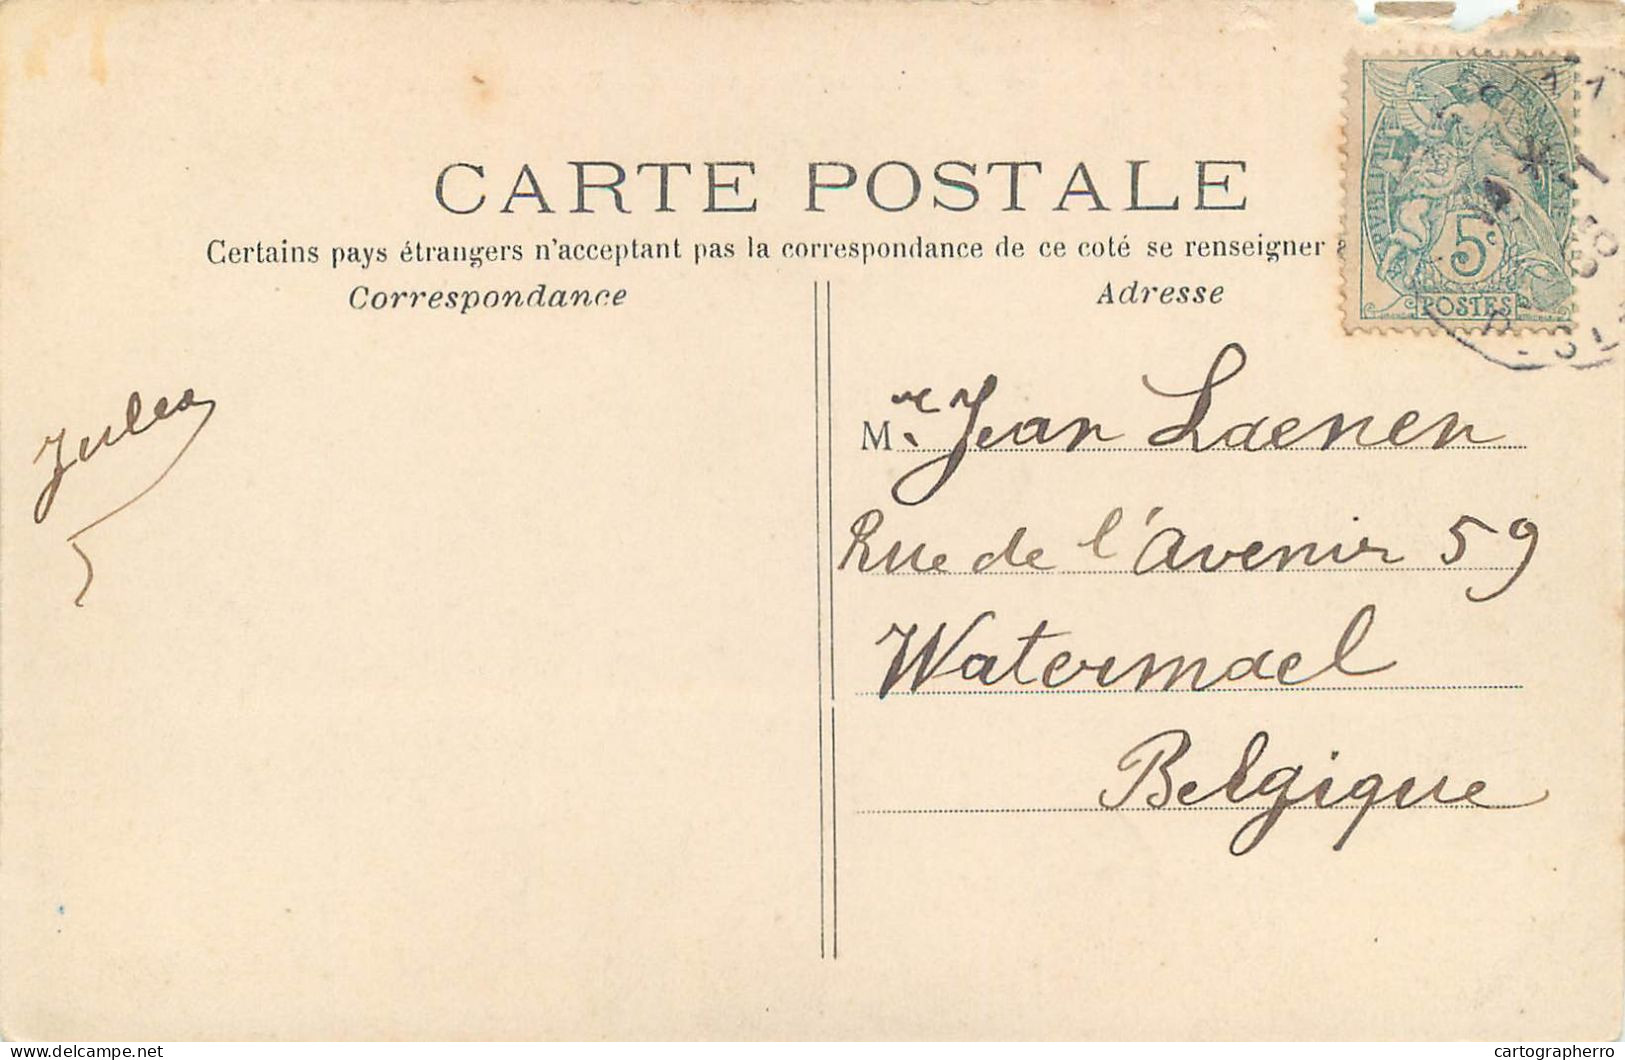 CARTE POSTALE
Certains pays étrangers n'acceptant pas la correspondance de ce coté se renseigner
Correspondance
Adresse
5c
POSTES
Jules
M. Jean Laenen
Rue de l'Avenir 59
Watermael
Belgique
delcampe.net
cartographerro